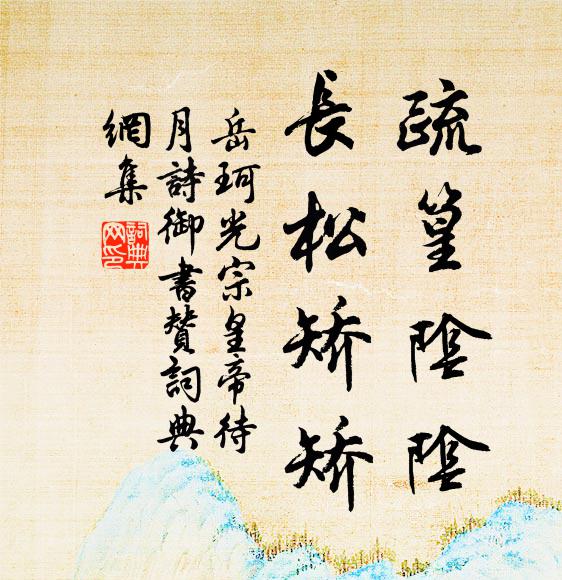 疏篁陰陰
長松矯矯
岳珂光宗皇帝待
月詩御書贊詞典
網集
詞典
网印